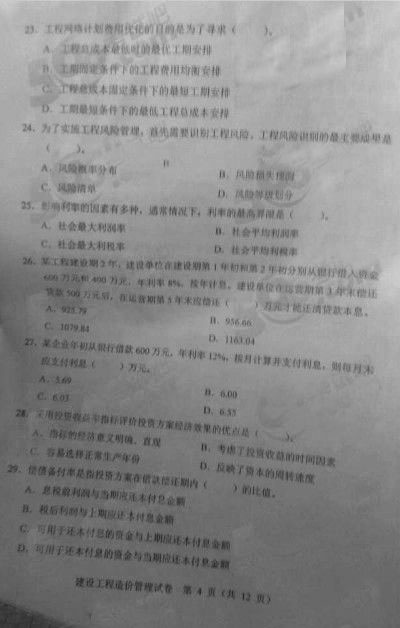 23. 工程网络计划费用优化的目的是为了寻求（    ）。
A. 工程总成本最低时的最优工期安排
B. 工期固定条件下的工程费用均衡安排
C. 工程总成本固定条件下的最短工期安排
D. 工期最短条件下的最低工程总成本安排
24. 为了实施工程风险管理，首先需要识别工程风险，工程风险识别的最主要成果是
（    ）。
A. 风险概率分布 B. 风险损失预测
C. 风险清单 D. 风险等级划分
25. 影响利率的因素有多种，通常情况下，利率的最高界限是（    ）。
A. 社会最大利润率 B. 社会平均利润率
C. 社会最大利税率 D. 社会平均利税率
26. 某工程建设期2年，建设单位在建设期第1年初和第2年初分别从银行借入资金
600万元和400万元，年利率8%，按年计息，建设单位在运营期第3年末偿还
贷款500万元后，在运营期第5年末应偿还（    ）万元才能还清贷款本息。
A. 925.79 B. 956.66
C. 1079.84 D. 1163.04
27. 某企业年初从银行借款600万元，年利率12%，按月计算并支付利息，则每月末
应支付利息（    ）万元。
A. 5.69 B. 6.00
C. 6.03 D. 6.55
28. 采用投资收益率指标评价投资方案经济效果的优点是（    ）。
A. 指标的经济意义明确、直观 B. 考虑了投资收益的时间因素
C. 容易选择正常生产年份 D. 反映了资本的周转速度
29. 偿债备付率是指投资方案在借款偿还期内（    ）的比值。
A. 息税前利润与当期应还本付息金额
B. 税后利润与上期应还本付息金额
C. 可用于还本付息的资金与上期应还本付息金额
D. 可用于还本付息的资金与当期应还本付息金额
建设工程造价管理试卷 第 4 页（共 12 页）